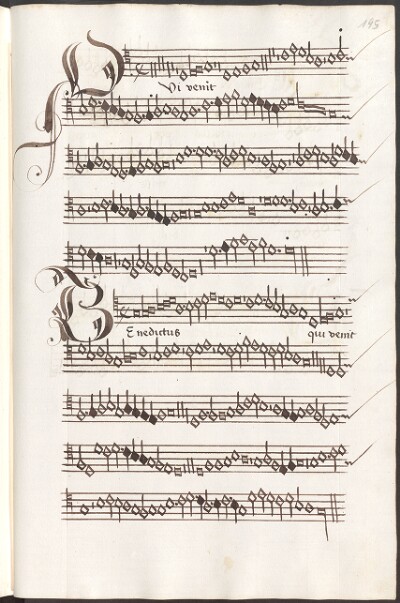 195
Qui venit
Benedictus qui venit